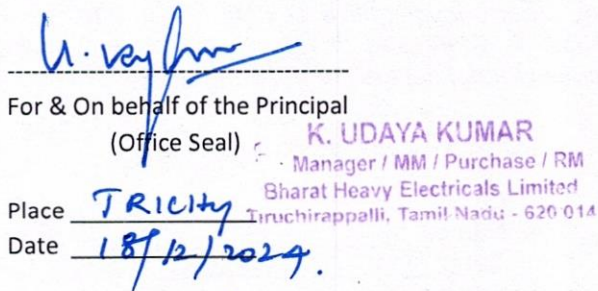 For & On behalf of the Principal
(Office Seal)
K. UDAYA KUMAR
Manager / MM / Purchase / RM
Bharat Heavy Electricals Limited
Tiruchirappalli, Tamil Nadu - 620 014
Place TRICHY
Date 18/12/2024.